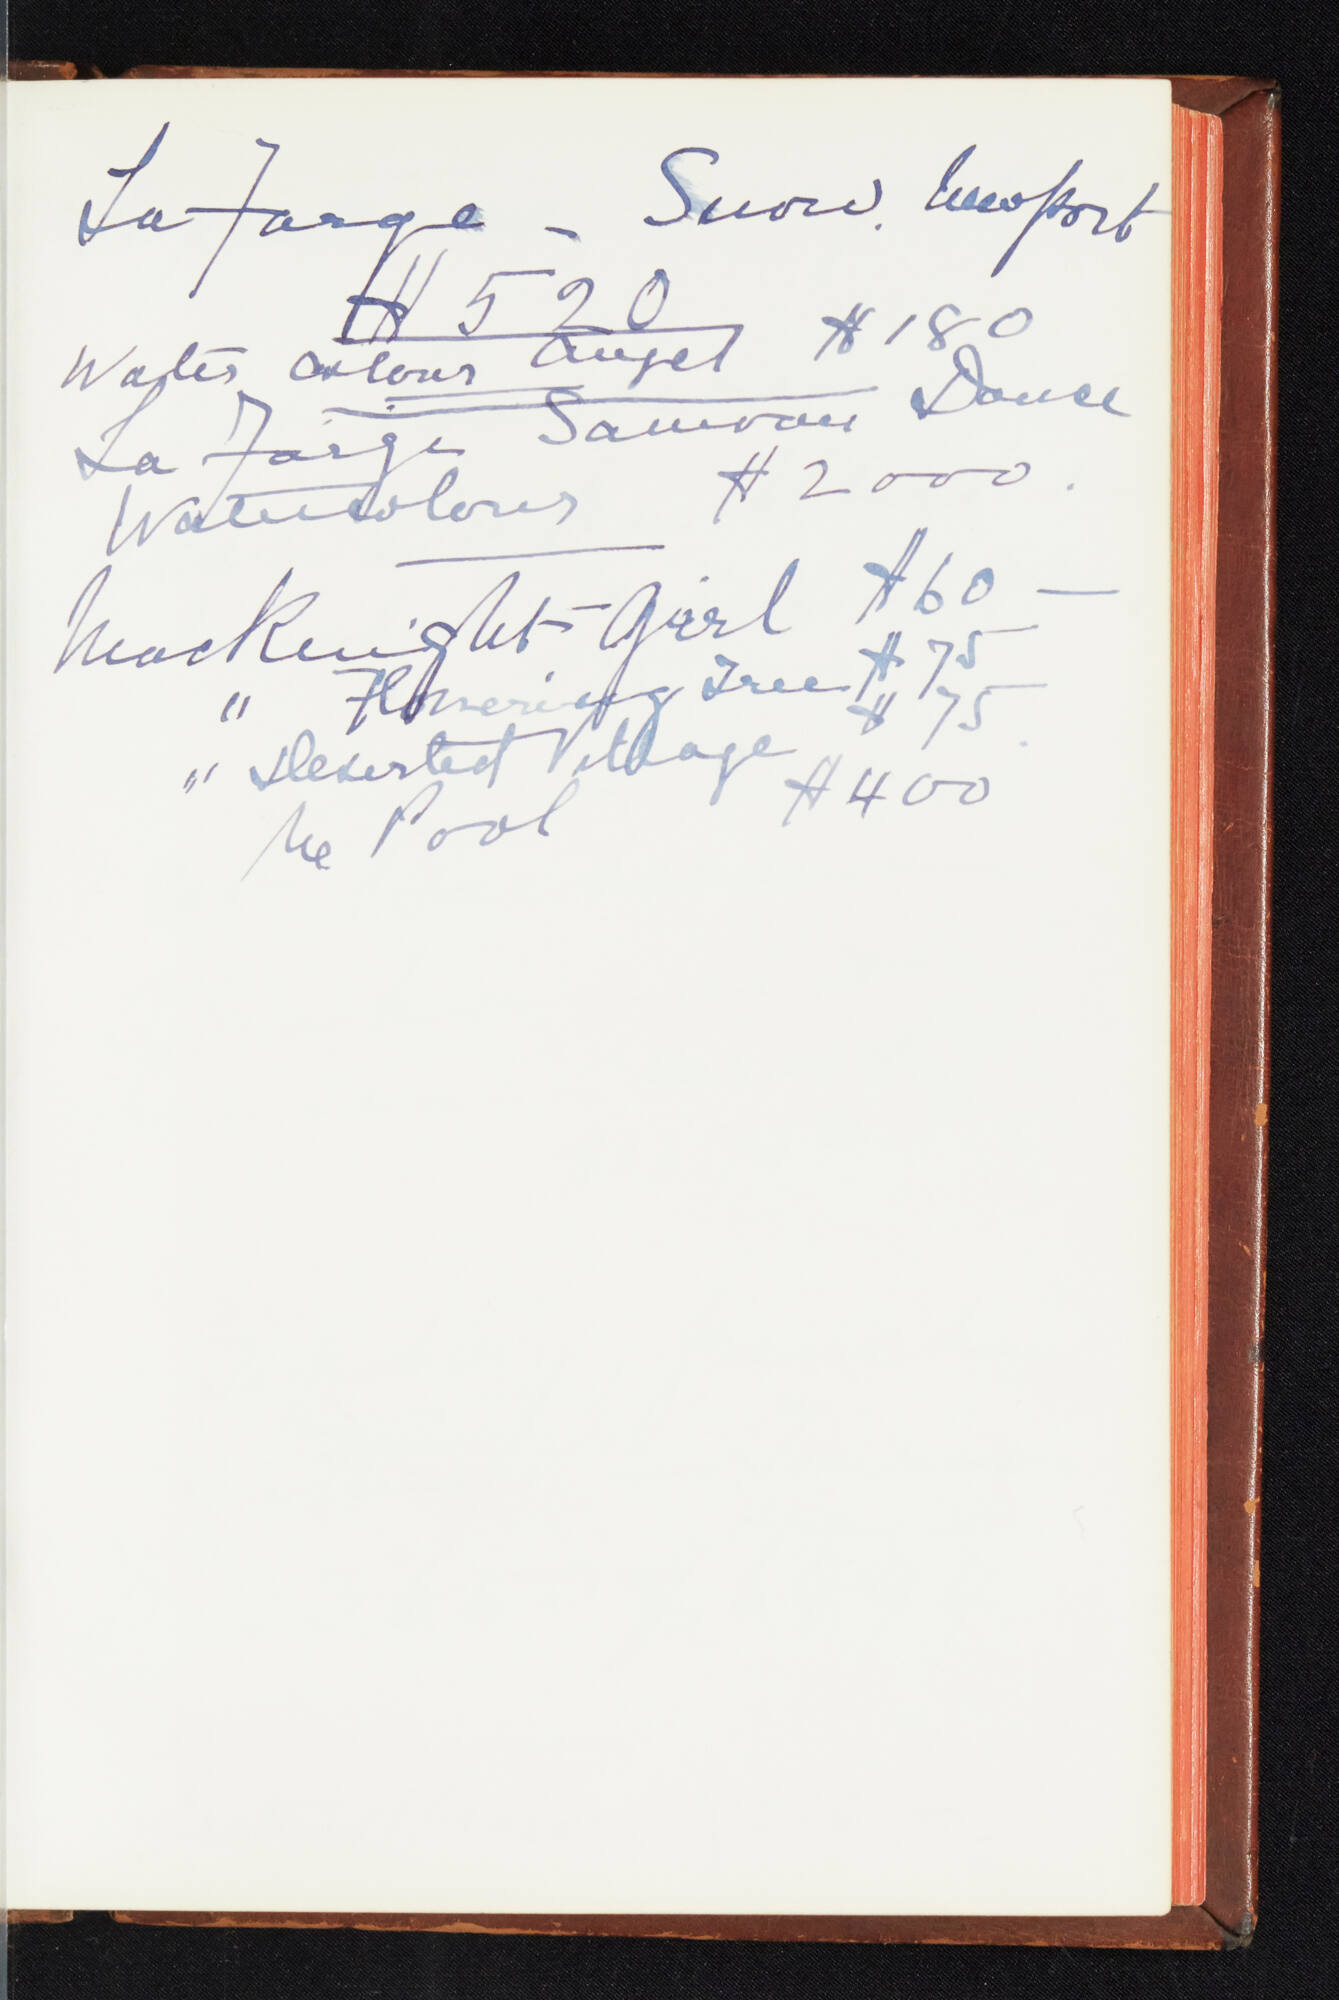 La Farge - Snow. Newport
$520
Water colour Angel $180
La Farge Samoan Dance
Watercolour $2000.
MacKnight - Girl $60 —
" Flowering Tree $75
" Deserted Village $75.
The Pool $400